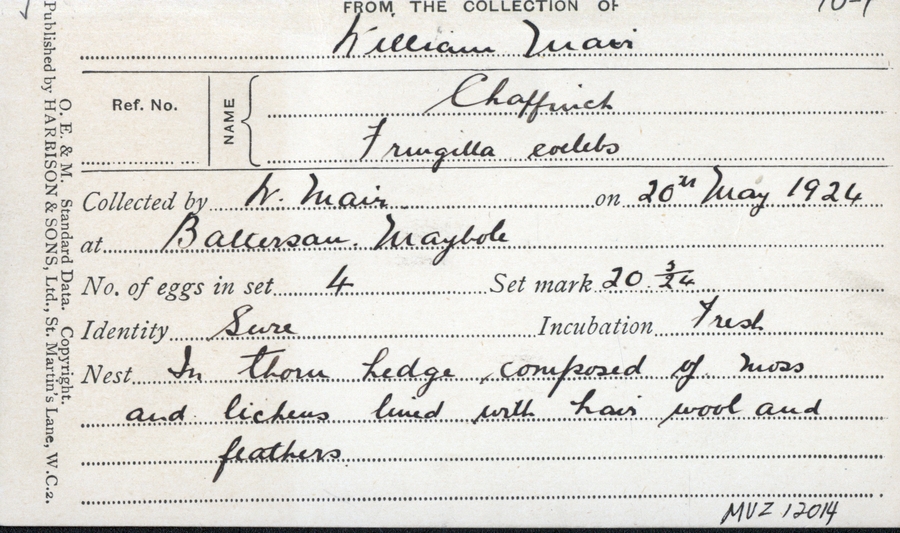 FROM THE COLLECTION OF
William Mair
Ref. No.
NAME
Chaffinch
Fringilla coelebs
Collected by W. Mair on 20th May 1924
at Baltersan. Maybole
No. of eggs in set 4 Set mark 20. 5/24
Identity Sure Incubation Fresh
Nest In thorn hedge, composed of moss
and lichens lined with hair wool and
feathers.
MVZ 12014
O. E. & M. Standard Data. Copyright.
Published by HARRISON & SONS, Ltd., St. Martin's Lane, W.C.2.